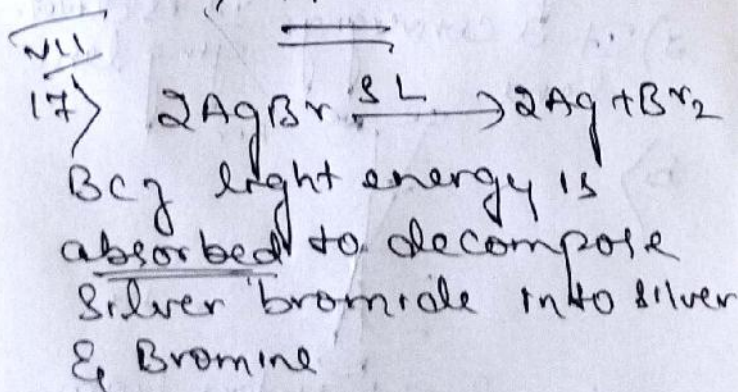 VII
17) 2AgBr S L → 2Ag + Br₂
Bcz light energy is
absorbed to decompose
Silver bromide into silver
& Bromine